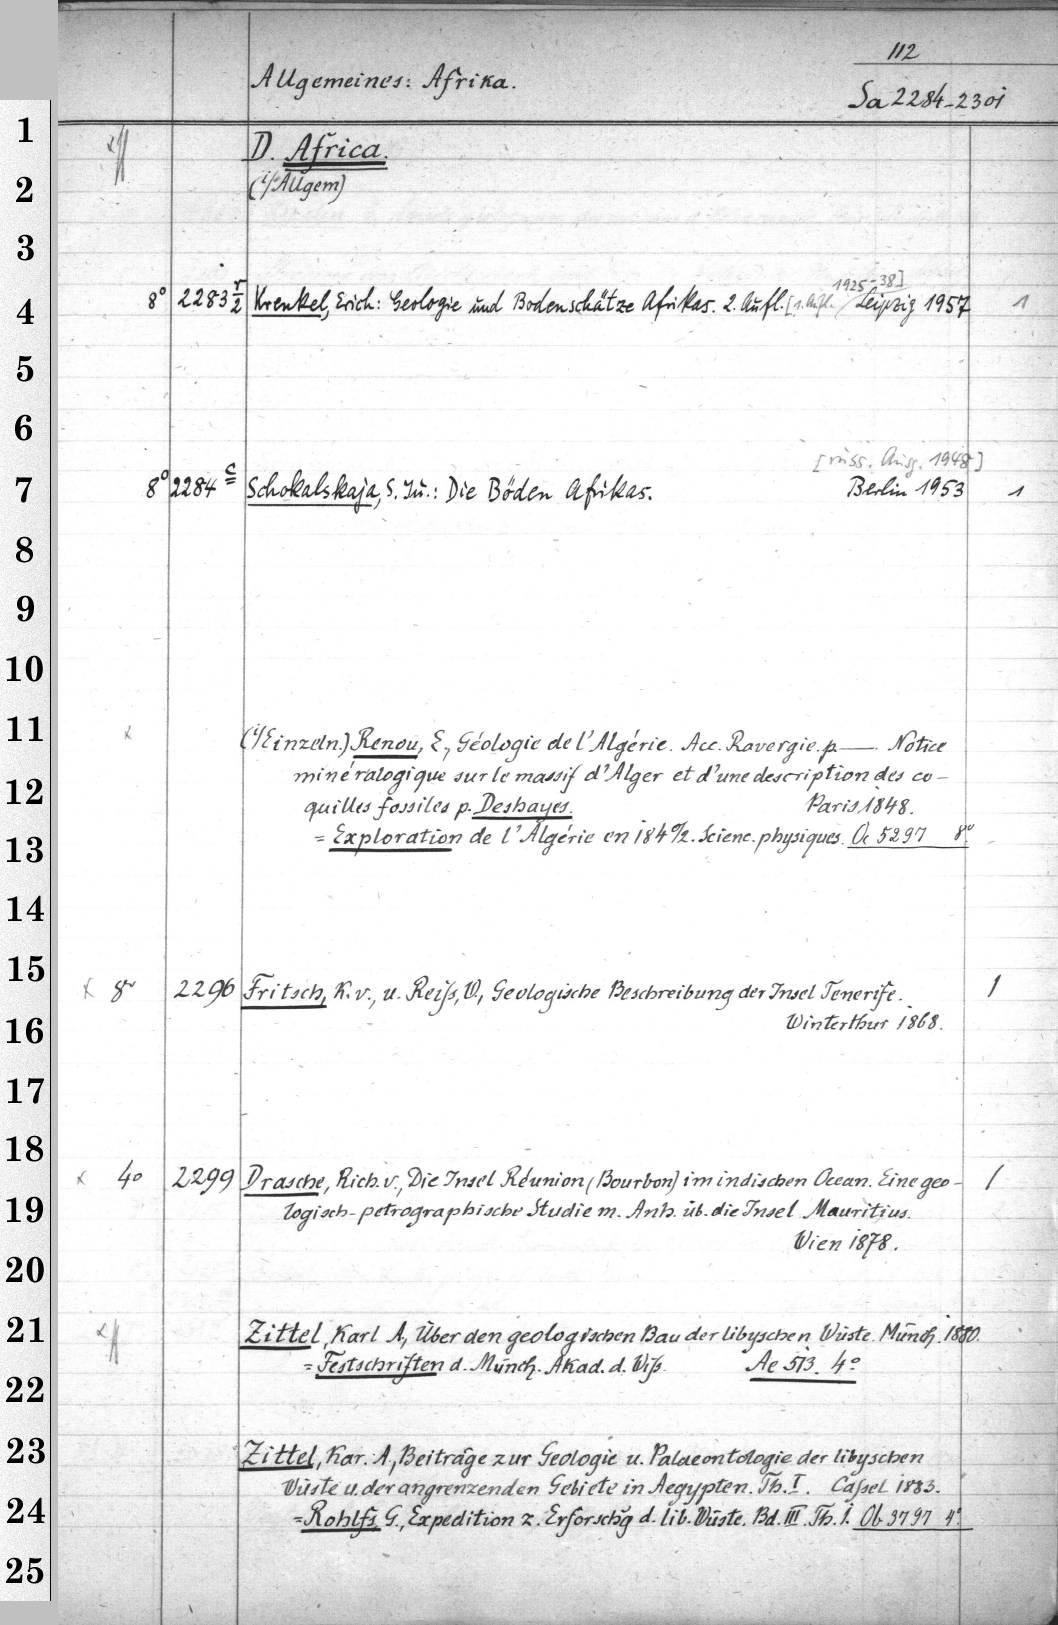 112
Allgemeines: Afrika.
Sa 2284-2301
1
D. Africa.
2
(i/Allgem)
3
1925-38]
4 8° 2283 r/2 Krenkel, Erich: Geologie und Bodenschätze Afrikas. 2. Aufl. [1. Aufl. Leipzig 1957 1
5
6
[russ. Ausg. 1948]
7 8° 2284 c Schokalskaja, S. Ju.: Die Böden Afrikas. Berlin 1953 1
8
9
10
11 x (i/Einzeln.) Renou, E., Géologie de l'Algérie. Acc. Ravergie. p. —. Notice
minéralogique sur le massif d'Alger et d'une description des co-
12 quilles fossiles p. Deshayes. Paris 1848.
13 = Exploration de l'Algérie en 1840/2. Scienc. physiques. Oc 5297 8°
14
15 x 8° 2296 Fritsch, K. v., u. Reiſs, W., Geologische Beschreibung der Insel Tenerife. 1
16 Winterthur 1868.
17
18
x 4° 2299 Drasche, Rich. v., Die Insel Réunion (Bourbon) im indischen Ocean. Eine geo- 1
19 logisch-petrographische Studie m. Anh. üb. die Insel Mauritius.
20 Wien 1878.
21 Zittel, Karl A., Über den geologischen Bau der libyschen Wüste. Münch. 1880.
22 = Festschriften d. Münch. Akad. d. Wiſs. Ae 513. 4°
23 Zittel, Kar. A., Beiträge zur Geologie u. Palaeontologie der libyschen
Wüste u. der angrenzenden Gebiete in Aegypten. Th. I. Caſsel 1883.
24 = Rohlfs, G., Expedition z. Erforschg d. lib. Wüste. Bd. III. Th. I. Ob 3797 4°
25